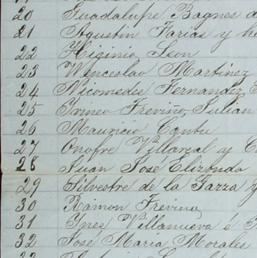 20 Guadalupe Bagnes
21 Agustin Farias y
22 Higinio Leon
23 Wenceslao Martinez
24 Nicomedes Fernandez
25 Irineo Treviño, Julian
26 Mauricio Cantu
27 Onofre Villareal y
28 Juan José Elizondo
29 Silvestre de la Garza y
30 Ramon Trevino
31 Ynes Villanueva é
32 José Maria Morales